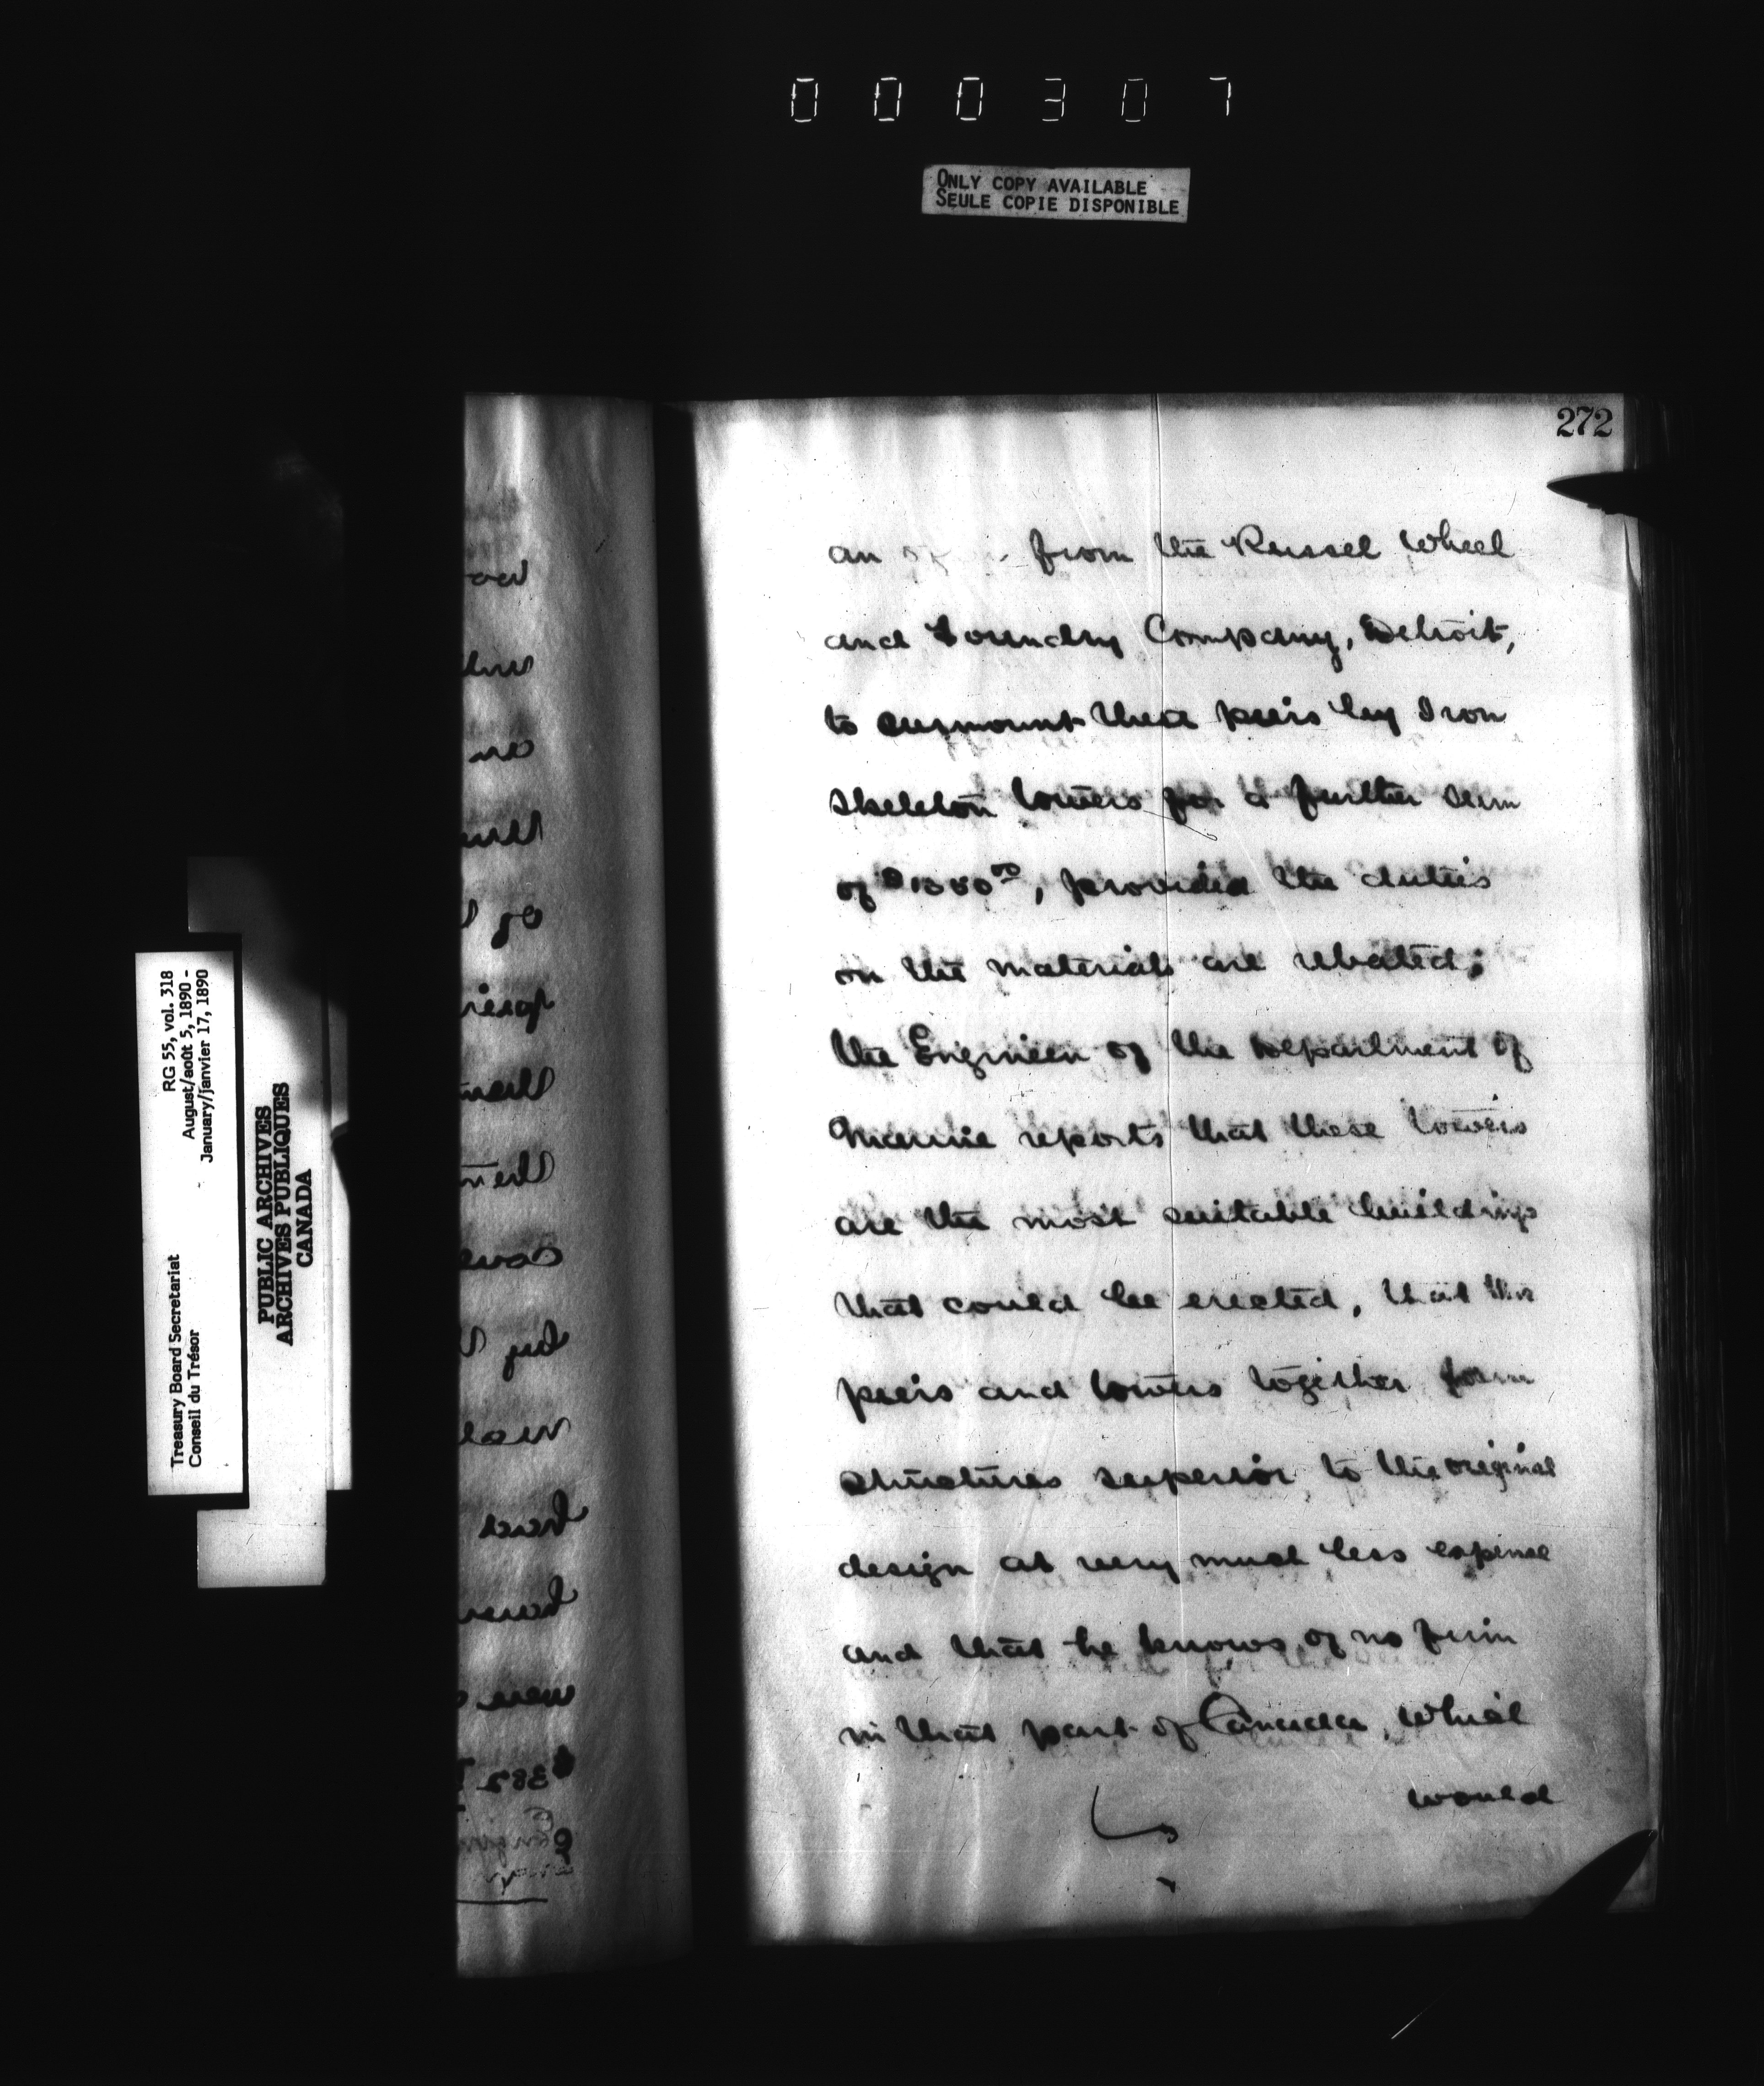 000307
ONLY COPY AVAILABLE
SEULE COPIE DISPONIBLE
272
an from the Russel Wheel
and Foundry Company, Detroit,
to surmount these piers by Iron
skeleton towers for a further sum
of , provided the duties
on the materials are rebated;
the Engineer of the Department of
Marine reports that these towers
are the most suitable buildings
that could be erected, that the
piers and towers together form
structures superior to the original
design at very much less expense
and that he knows of no firm
in that part of Canada, which
would
RG 55, vol. 318
August/août 5, 1890 -
January/janvier 17, 1890
Treasury Board Secretariat
Conseil du Trésor
PUBLIC ARCHIVES
ARCHIVES PUBLIQUES
CANADA